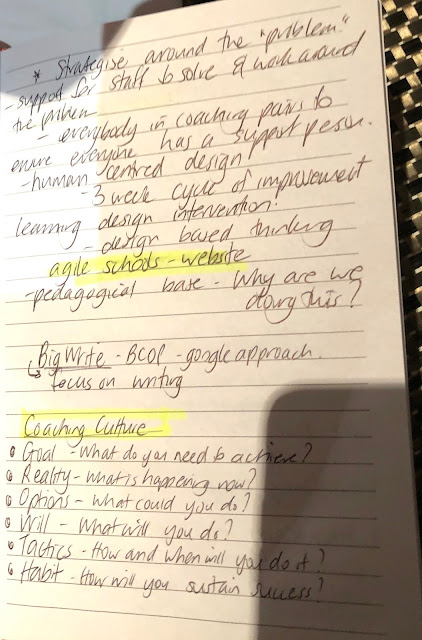 * Strategise around the "problem"
- support for staff to solve & work around
the problem
- everybody in coaching pairs to
ensure everyone has a support person.
- human centred design
- 3 week cycle of improvement
learning design intervention!
- design based thinking
agile schools - website
- pedagogical base - Why are we
doing this?
Big Write - BCOP - google approach.
↳ focus on writing
Coaching Culture
• Goal - What do you need to achieve?
• Reality - what is happening now?
• Options - what could you do?
• Will - What will you do?
• Tactics - How and when will you do it?
• Habit - How will you sustain success?